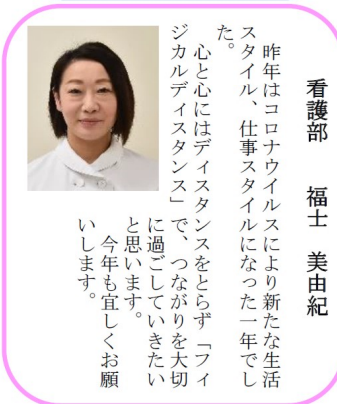 看護部　福士　美由紀
昨年はコロナウイルスにより新たな生活
スタイル、仕事スタイルになった一年でし
た。
心と心にはディスタンスをとらず「フィ
ジカルディスタンス」で、つながりを大切
に過ごしていきたい
と思います。
今年も宜しくお願
いします。